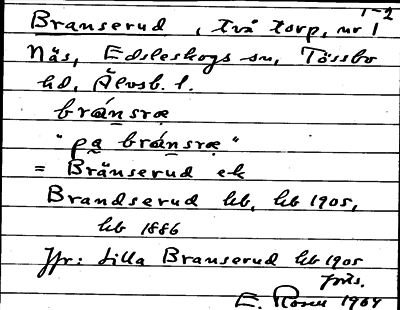 1-2
Branserud, två torp, nr 1
Näs, Edsleskogs sn, Tössbo
hd, Älvsb. l.
bránsræ
"pa bránsræ"
= Bränserud ek
Brandserud hb, hb 1905,
hb 1886
Jfr: Lilla Branserud hb 1905
E. Rosén 1964